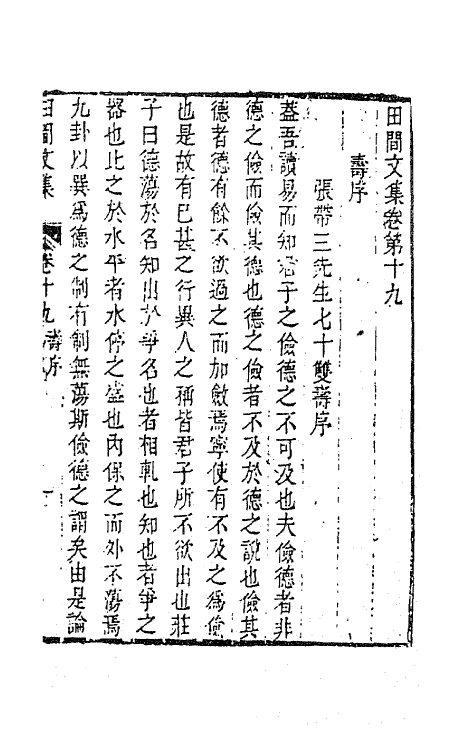 田間文集卷第十九
壽序
張帶三先生七十雙壽序
蓋吾讀易而知君子之儉德之不可及也夫儉德者非
德之儉而儉其德也德之儉者不及於德之說也儉其
德者德有餘不欲過之而加斂焉寧使有不及之爲儉
也是故有已甚之行異人之稱皆君子所不欲出也莊
子曰德蕩於名知出於爭名也者相軋也知也者爭之
器也比之於水平者水停之盛也內保之而外不蕩焉
九卦以巽爲德之制有制無蕩斯儉德之謂矣由是論
田間文集
卷十九 壽序
一